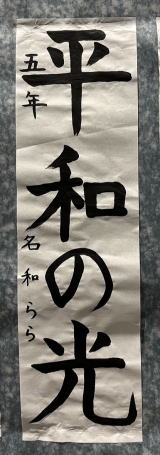 平和の光
五年
名和らら